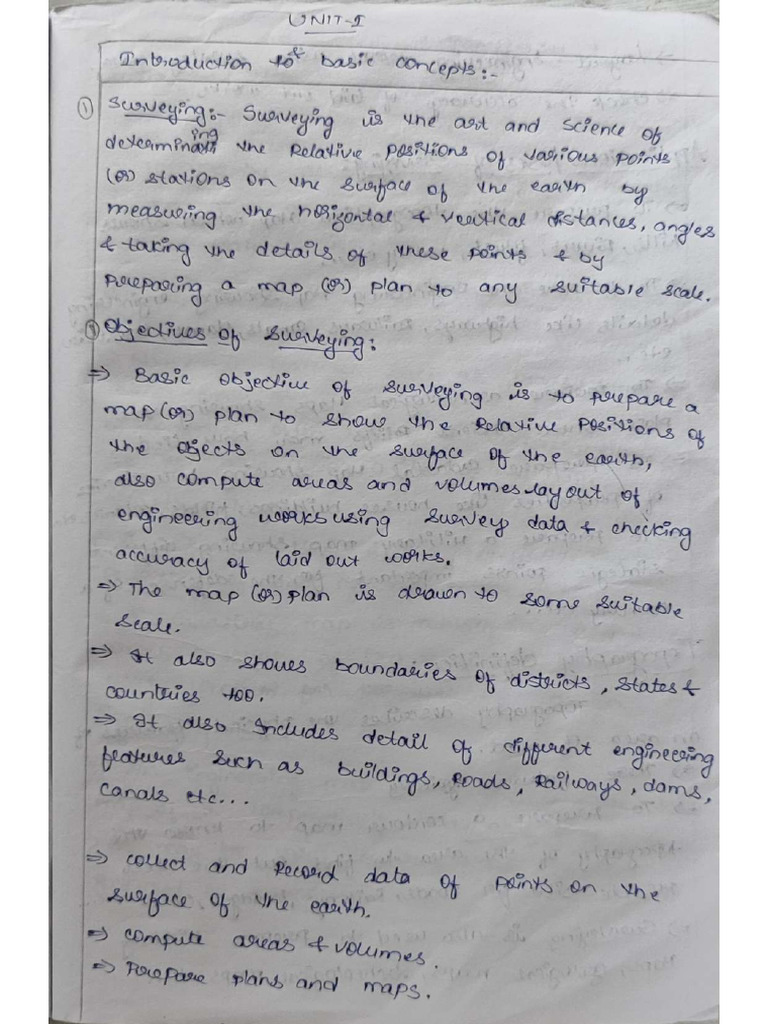 UNIT-I
Introduction to & basic concepts:-
① Surveying:- Surveying is the art and science of
determinating the Relative positions of various points
(or) stations on the surface of the earth by
measuring the horizontal & vertical distances, angles
& taking the details of these points & by
preparing a map (or) plan to any suitable scale.
Objectives of surveying:
⇒ Basic objective of surveying is to prepare a
map (or) plan to show the relative positions of
the objects on the surface of the earth,
also compute areas and volumes, layout of
engineering works using survey data & checking
accuracy of laid out works.
⇒ The map (or) plan is drawn to some suitable
scale.
⇒ It also shows boundaries of districts, states &
countries too.
⇒ It also Includes detail of different engineering
features such as buildings, roads, railways, dams,
canals etc...
⇒ collect and Record data of points on the
surface of the earth.
⇒ compute areas & volumes.
⇒ Prepare plans and maps.